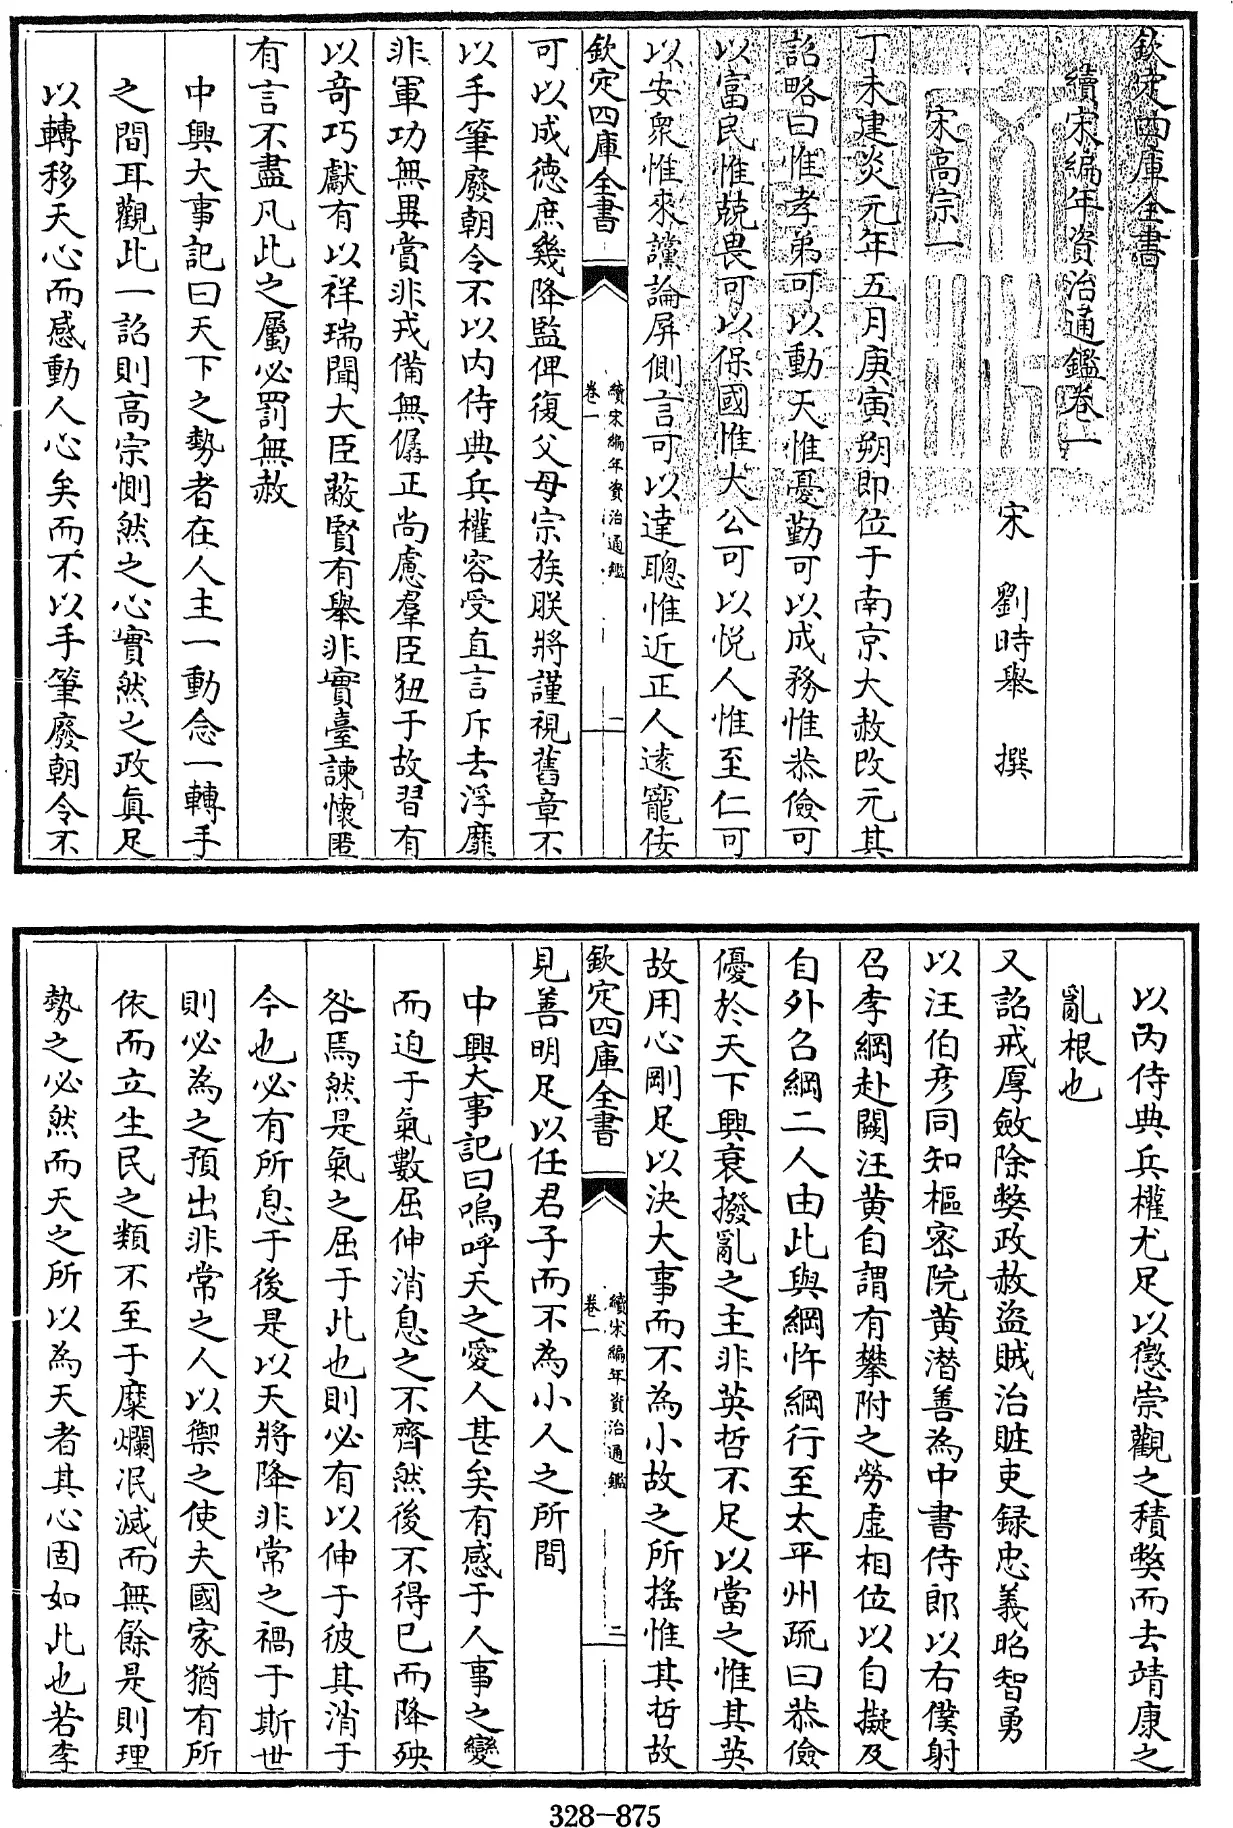 欽定四庫全書
續宋編年資治通鑑卷一
宋 劉時舉 撰
宋高宗一
丁未建炎元年五月庚寅朔即位于南京大赦改元其
詔略曰惟孝弟可以動天惟憂勤可以成務惟恭儉可
以富民惟兢畏可以保國惟大公可以悦人惟至仁可
以安衆惟來讜論屏側言可以達聰惟近正人逺寵佞
欽定四庫全書
續宋編年資治通鑑
卷一
一
可以成德庶幾降監俾復父母宗族朕將謹視舊章不
以手筆廢朝令不以内侍典兵權容受直言斥去浮靡
非軍功無異賞非戎備無僝正尚慮羣臣狃于故習有
以奇巧獻有以祥瑞聞大臣蔽賢有舉非實臺諫懷匿
有言不盡凡此之屬必罰無赦
中興大事記曰天下之勢者在人主一動念一轉手
之間耳觀此一詔則高宗惻然之心實然之政眞足
以轉移天心而感動人心矣而不以手筆廢朝令不
以内侍典兵權尤足以懲崇觀之積弊而去靖康之
亂根也
又詔戒厚斂除獘政赦盜賊治賍吏録忠義昭智勇
以汪伯彦同知樞密院黄潛善為中書侍郎以右僕射
召李綱赴闕汪黄自謂有攀附之勞虚相位以自擬及
自外召綱二人由此與綱忤綱行至太平州疏曰恭儉
優於天下興衰撥亂之主非英哲不足以當之惟其英
故用心剛足以決大事而不為小故之所揺惟其哲故
欽定四庫全書
續宋編年資治通鑑
卷一
二
見善明足以任君子而不為小人之所間
中興大事記曰嗚呼天之愛人甚矣有感于人事之變
而迫于氣數屈伸消息之不齊然後不得已而降殃
咎焉然是氣之屈于此也則必有以伸于彼其消于
今也必有所息于後是以天將降非常之禍于斯世
則必為之預出非常之人以禦之使夫國家猶有所
依而立生民之類不至于糜爛泯滅而無餘是則理
勢之必然而天之所以為天者其心固如此也若李
328-875